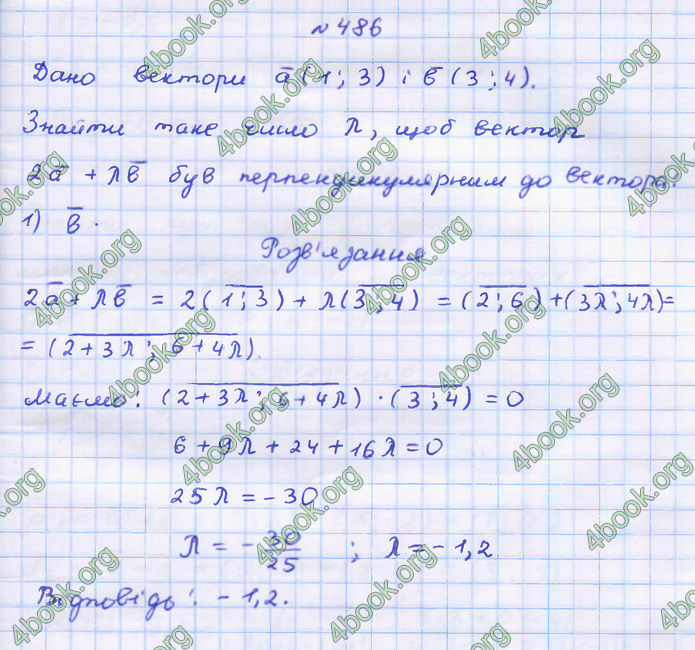 № 486
Дано вектори a̅ (1; 3) і b̅ (3; 4).
Знайти таке число λ, щоб вектор
2a̅ + λb̅ був перпендикулярним до вектора:
1) b̅.
Розв'язання
2a̅ + λb̅ = 2(1; 3) + λ(3; 4) = (2; 6) + (3λ; 4λ) =
= (2 + 3λ; 6 + 4λ).
Маємо: (2 + 3λ; 6 + 4λ) · (3; 4) = 0
6 + 9λ + 24 + 16λ = 0
25λ = - 30
λ = - 30/25 ; λ = - 1,2
Відповідь: - 1,2.
4book.org